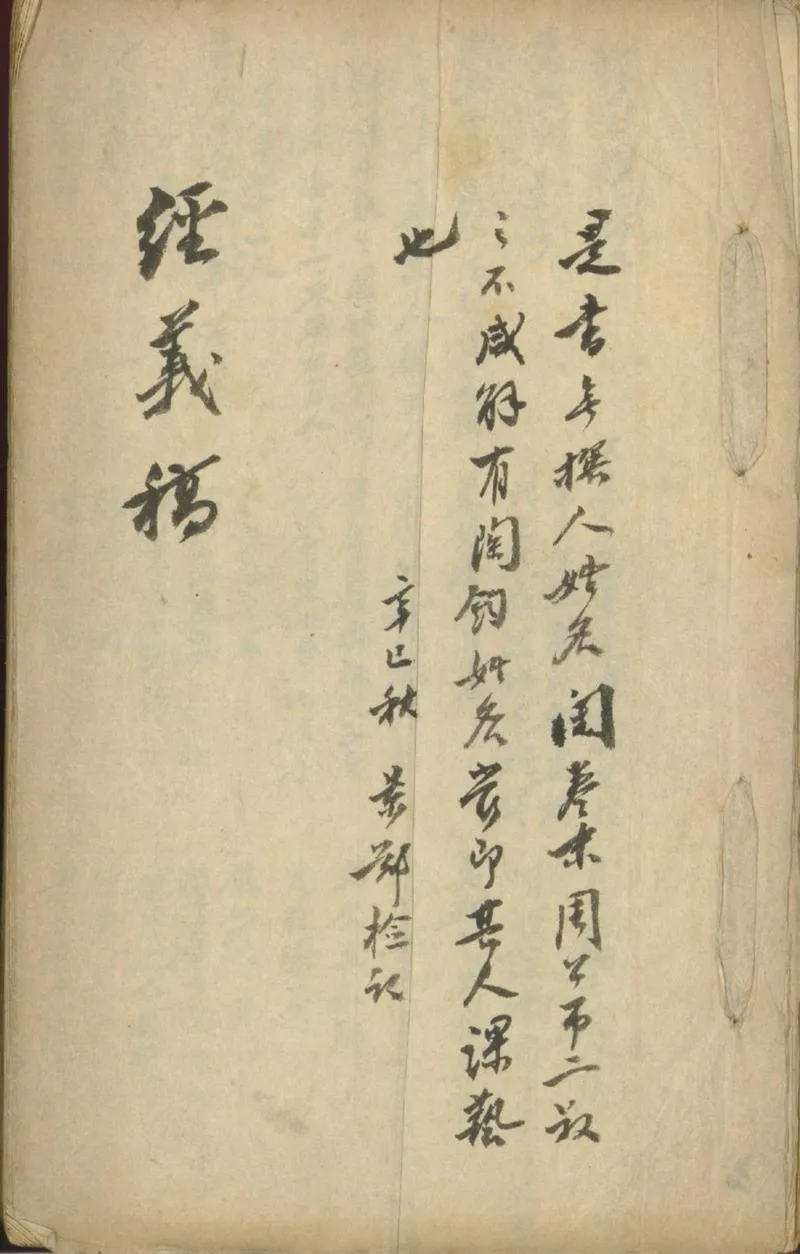 是書无撰人姓名閱卷末周公弔二叔
之不咸解有陶鈞姓名當即其人課藝
也
辛巳秋 景鄭檢記
經義稿